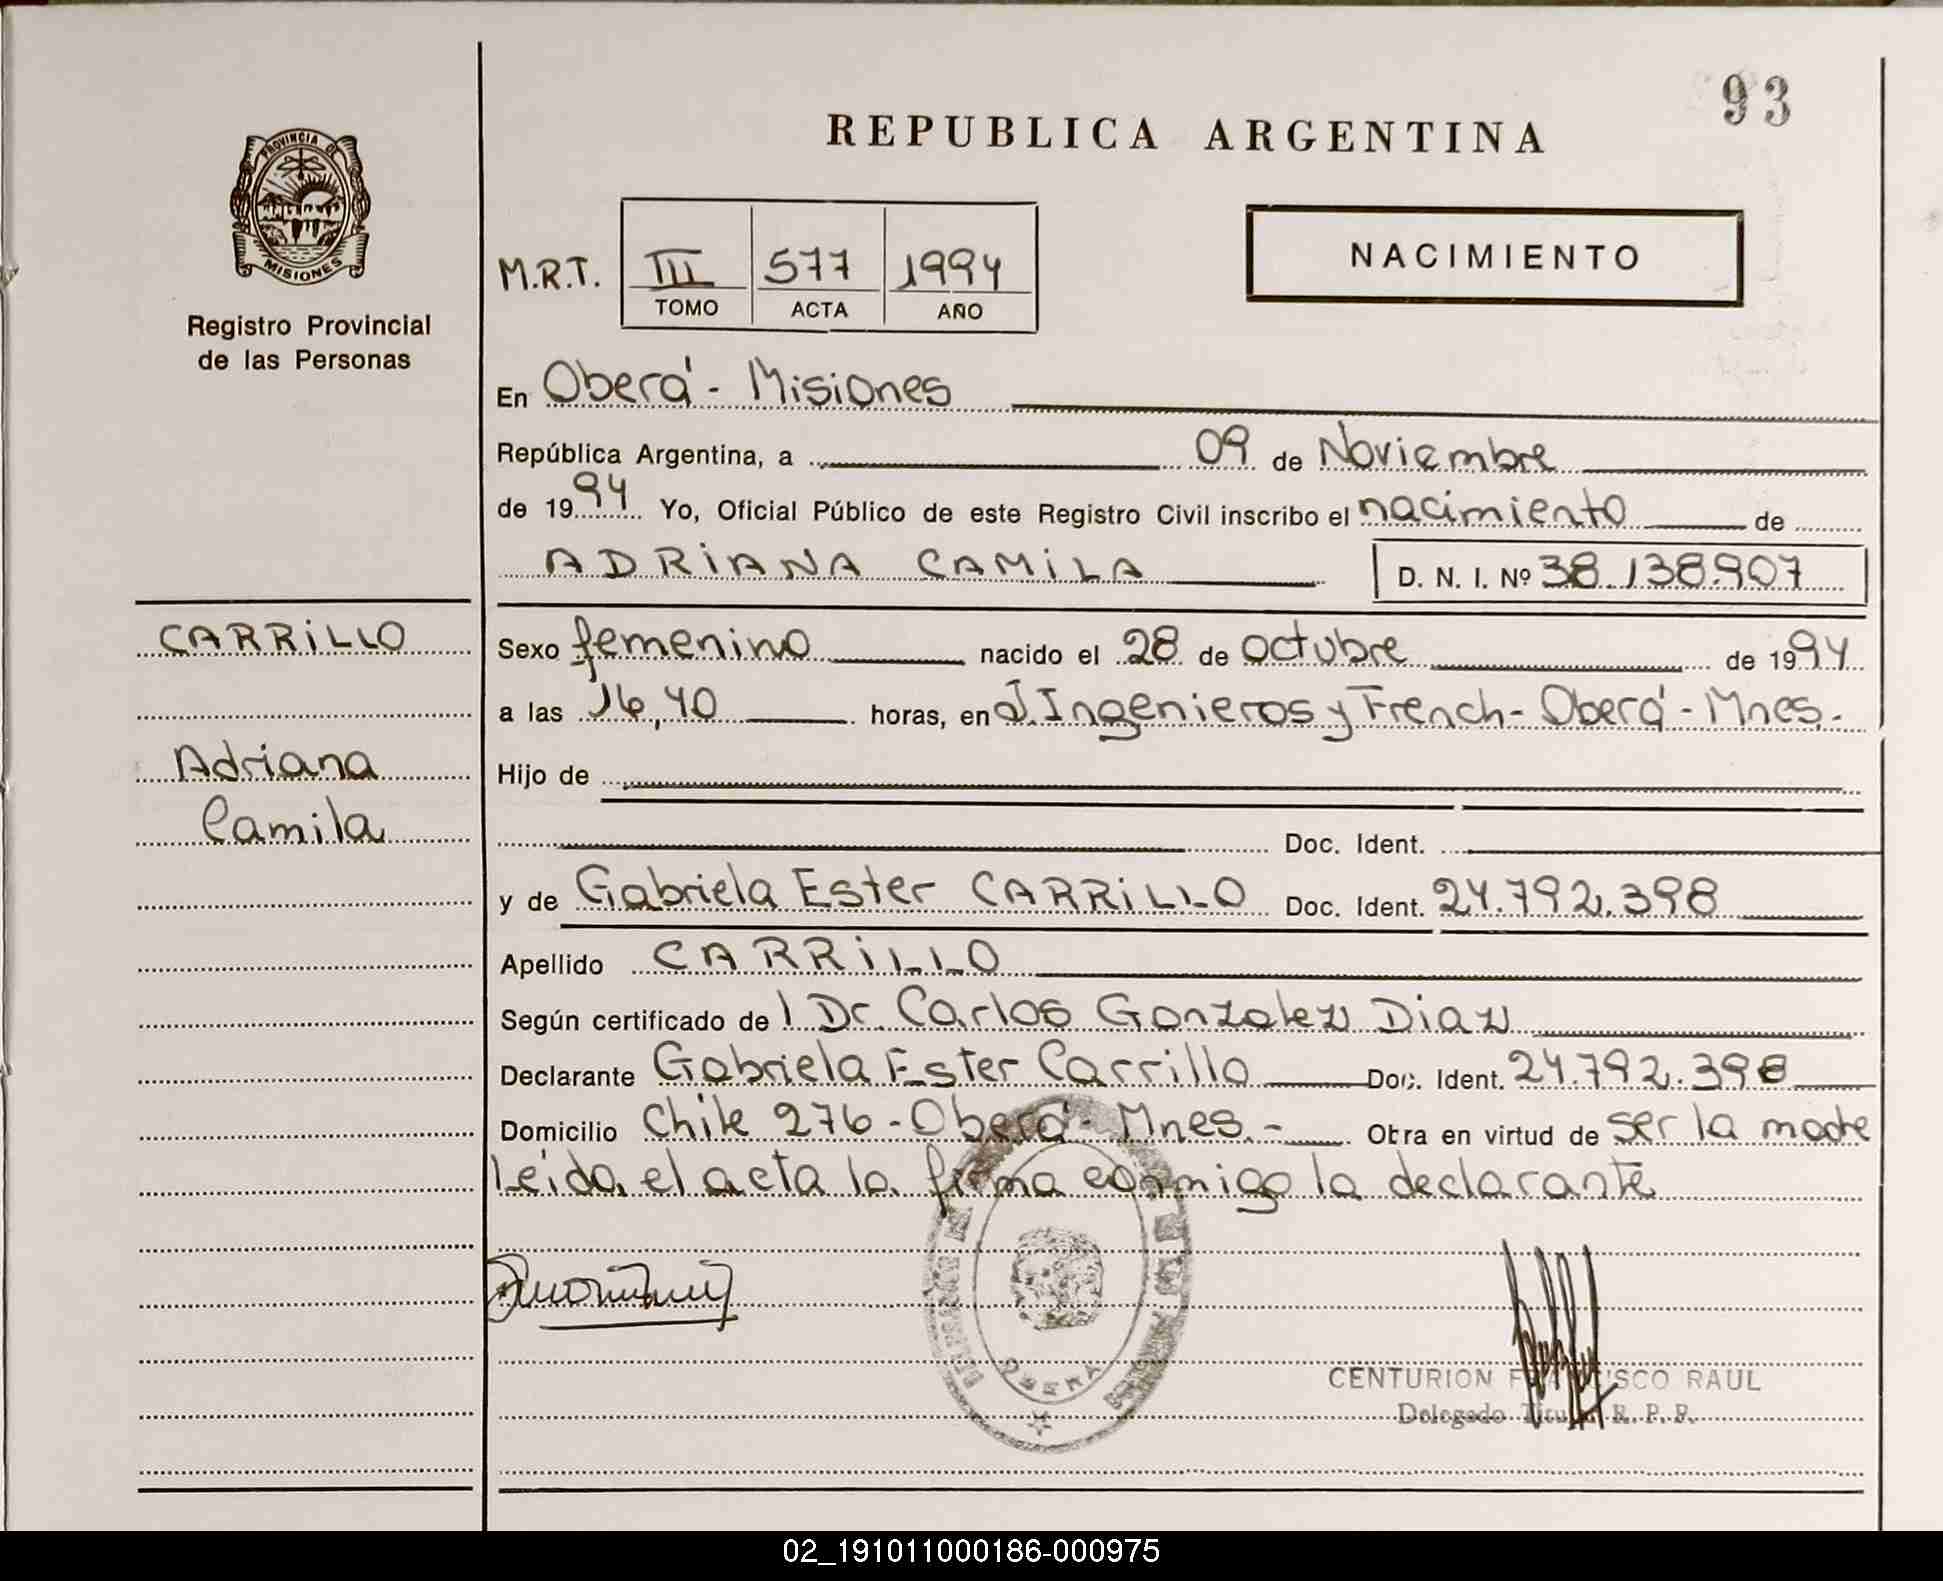 93
REPUBLICA ARGENTINA
PROVINCIA DE
MISIONES
Registro Provincial
de las Personas
M.R.T.
III 577 1994
TOMO ACTA AÑO
NACIMIENTO
En Oberá - Misiones
República Argentina, a 09 de Noviembre
de 1994 Yo, Oficial Público de este Registro Civil inscribo el nacimiento de
ADRIANA CAMILA D. N. I. Nº 38.138.907
CARRILLO
Adriana
Camila
Sexo femenino nacido el 28 de octubre de 1994
a las 16,40 horas, en J. Ingenieros y French - Oberá - Mnes.
Hijo de
Doc. Ident.
y de Gabriela Ester CARRILLO Doc. Ident. 24.792.398
Apellido CARRILLO
Según certificado de l Dr. Carlos Gonzalez Diaz
Declarante Gabriela Ester Carrillo Doc. Ident. 24.792.398
Domicilio Chile 276 - Oberá - Mnes. - Obra en virtud de ser la madre
Leída el acta la firma conmigo la declarante
OBERA
CENTURION FRANCISCO RAUL
Delegado Titular R. P. P.
02_191011000186-000975